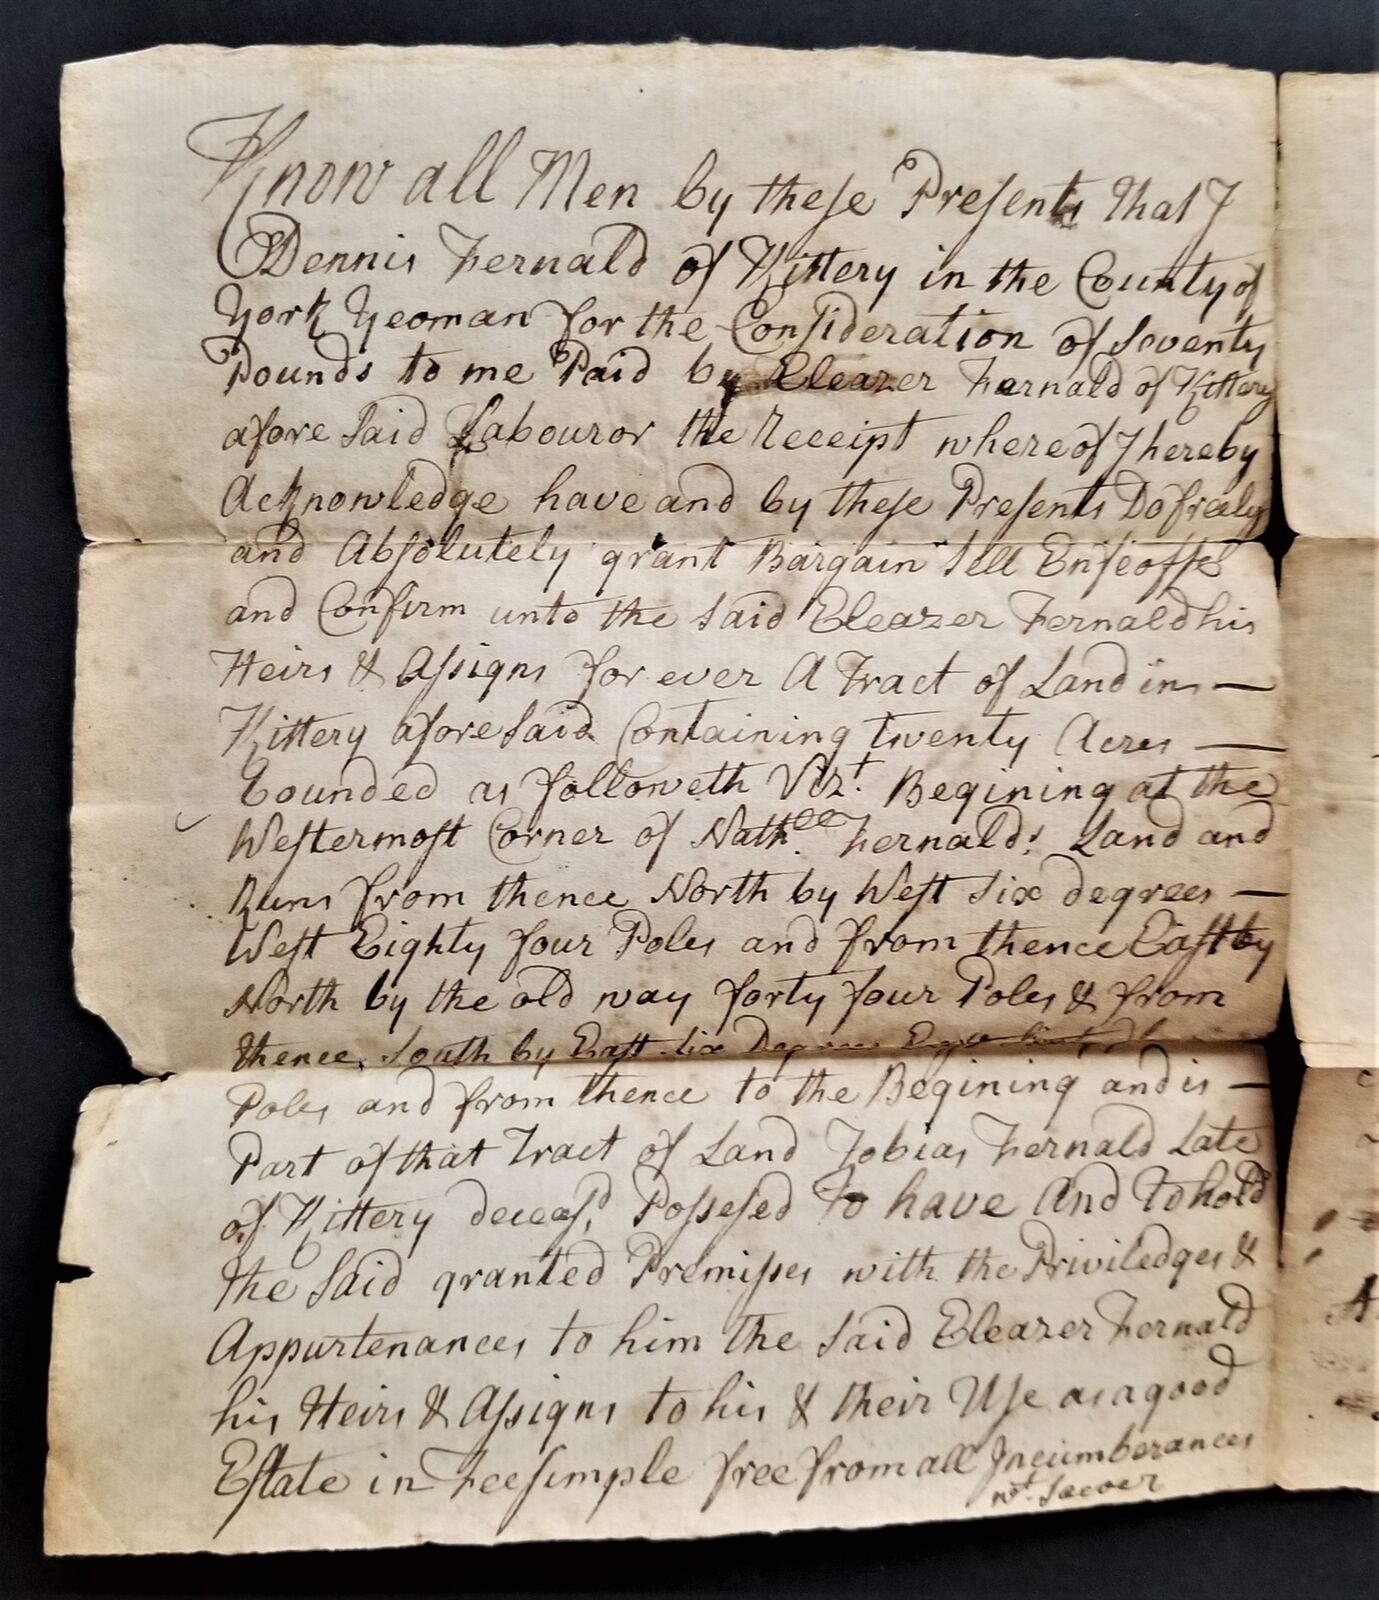 Know all Men by these Presents that I
Dennis Fernald of Kittery in the County of
York Yeoman for the Consideration of Seventy
Pounds to me Paid by Eleazer Fernald of Kittery
afore Said Labouror the Receipt where of I hereby
Acknowledge have and by these Presents Do freely
and Absolutely grant Bargain Sell Enfeoffe
and Confirm unto the Said Eleazer Fernald his
Heirs & Assigns for ever A Tract of Land in —
Kittery afore Said Containing twenty Acres —
bounded as followeth Vizt. Begining at the
Westermost Corner of Nathll. Fernalds Land and
Runs from thence North by West Six degrees —
West Eighty four Poles and from thence East by
North by the old way forty four Poles & from
thence South by East Six Degrees
Poles and from thence to the Begining and is —
Part of that Tract of Land Tobias Fernald Late
of Kittery deceasd. Possesed To have And To hold
the Said granted Premisses with the Priviledges &
Appurtenances to him the Said Eleazer Fernald
his Heirs & Assigns to his & their Use as a good
Estate in Feesimple free from all Incumberances
wt. Soever